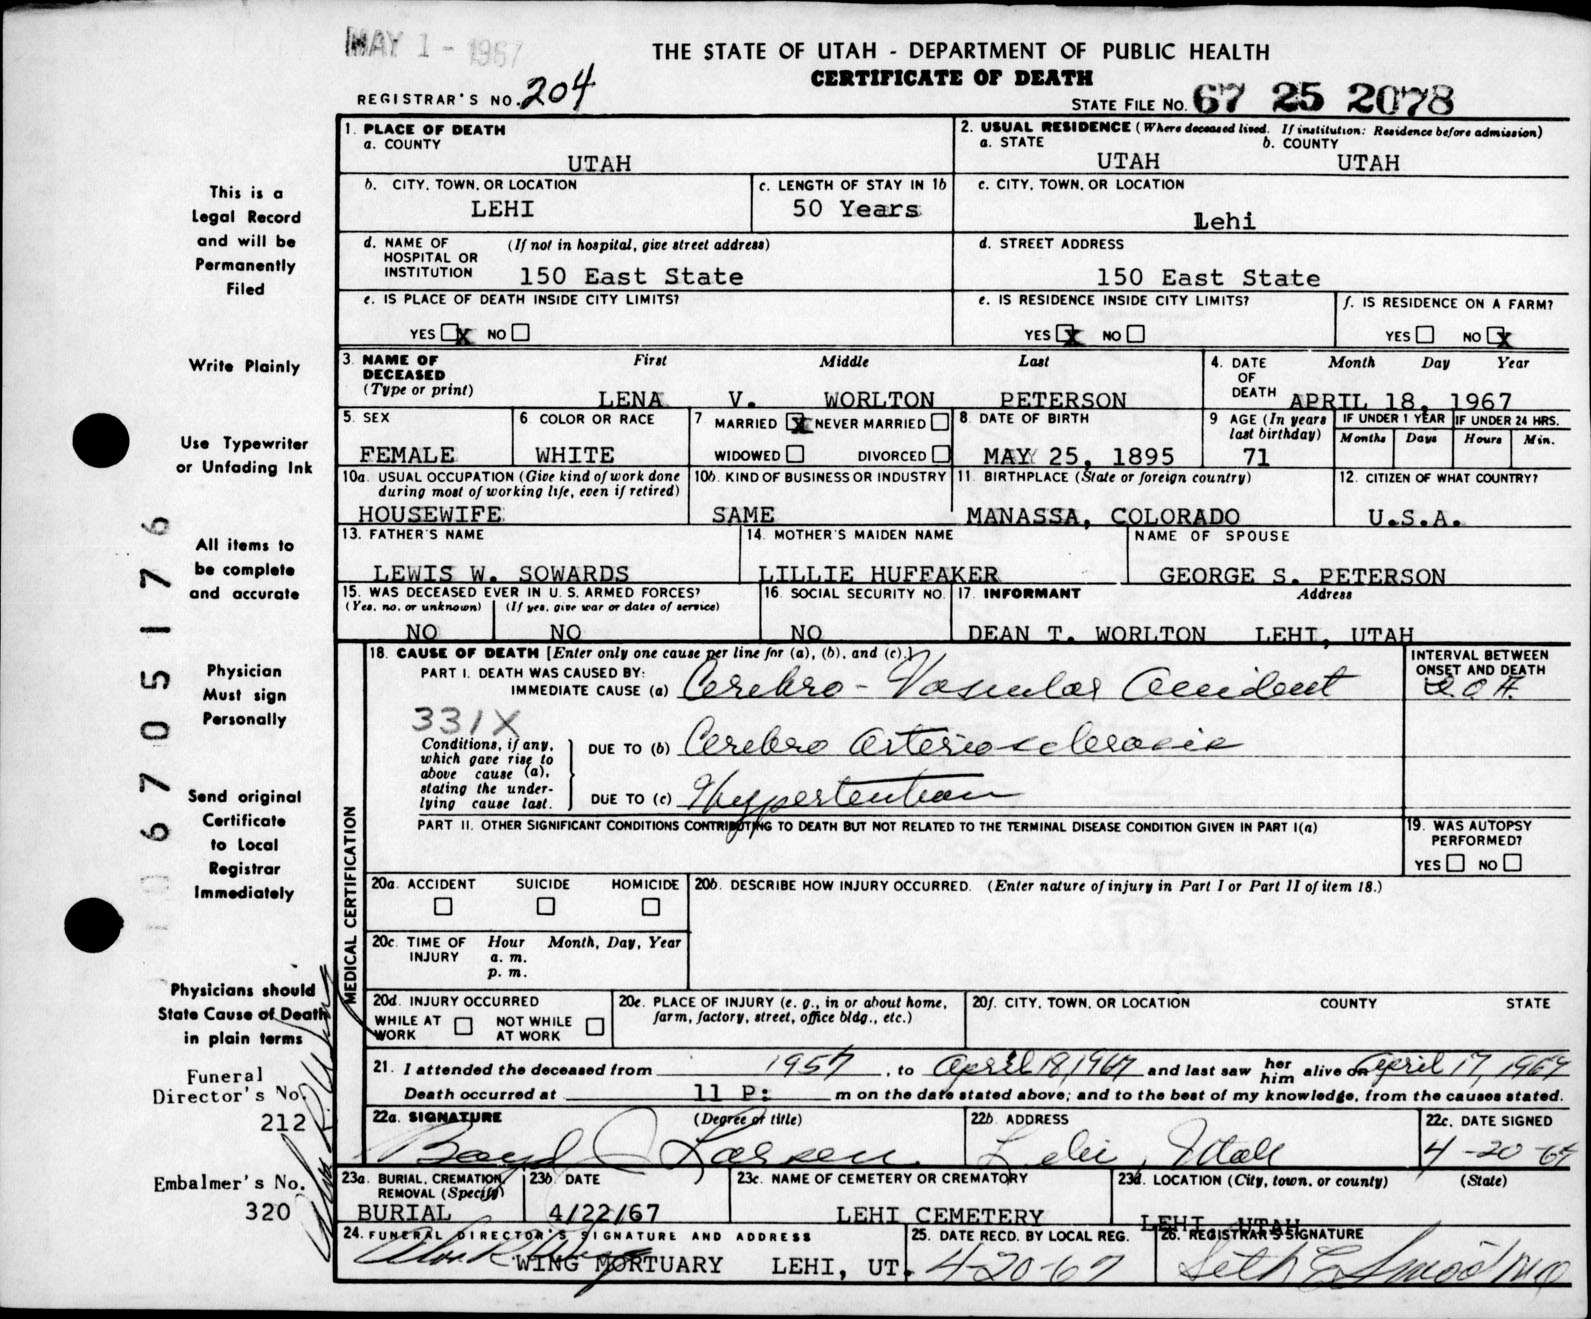 MAY 1 - 1967
THE STATE OF UTAH - DEPARTMENT OF PUBLIC HEALTH
CERTIFICATE OF DEATH
REGISTRAR'S NO. 204
STATE FILE NO. 67 25 2078
1. PLACE OF DEATH
a. COUNTY
UTAH
2. USUAL RESIDENCE (Where deceased lived. If institution: Residence before admission)
a. STATE b. COUNTY
UTAH UTAH
b. CITY, TOWN, OR LOCATION
LEHI
c. LENGTH OF STAY IN 1b
50 Years
c. CITY, TOWN, OR LOCATION
Lehi
d. NAME OF HOSPITAL OR INSTITUTION (If not in hospital, give street address)
150 East State
d. STREET ADDRESS
150 East State
e. IS PLACE OF DEATH INSIDE CITY LIMITS?
YES X NO
e. IS RESIDENCE INSIDE CITY LIMITS?
YES X NO
f. IS RESIDENCE ON A FARM?
YES NO X
3. NAME OF DECEASED (Type or print)
First Middle Last
LENA V. WORLTON PETERSON
4. DATE OF DEATH Month Day Year
APRIL 18, 1967
5. SEX
FEMALE
6 COLOR OR RACE
WHITE
7 MARRIED X NEVER MARRIED
WIDOWED DIVORCED
8 DATE OF BIRTH
MAY 25, 1895
9 AGE (In years last birthday)
71
IF UNDER 1 YEAR IF UNDER 24 HRS.
Months Days Hours Min.
10a. USUAL OCCUPATION (Give kind of work done during most of working life, even if retired)
HOUSEWIFE
10b. KIND OF BUSINESS OR INDUSTRY
SAME
11 BIRTHPLACE (State or foreign country)
MANASSA, COLORADO
12. CITIZEN OF WHAT COUNTRY?
U.S.A.
13. FATHER'S NAME
LEWIS W. SOWARDS
14. MOTHER'S MAIDEN NAME
LILLIE HUFFAKER
NAME OF SPOUSE
GEORGE S. PETERSON
15. WAS DECEASED EVER IN U. S. ARMED FORCES?
(Yes, no, or unknown) (If yes, give war or dates of service)
NO NO
16. SOCIAL SECURITY NO.
NO
17. INFORMANT Address
DEAN T. WORLTON LEHI, UTAH
MEDICAL CERTIFICATION
18. CAUSE OF DEATH [Enter only one cause per line for (a), (b), and (c).]
INTERVAL BETWEEN ONSET AND DEATH
PART I. DEATH WAS CAUSED BY:
IMMEDIATE CAUSE (a) Cerebro-Vascular Accident
331X
Conditions, if any, which gave rise to above cause (a), stating the underlying cause last.
DUE TO (b) Cerebro Arteriosclerosis
DUE TO (c) Hypertention
PART II. OTHER SIGNIFICANT CONDITIONS CONTRIBUTING TO DEATH BUT NOT RELATED TO THE TERMINAL DISEASE CONDITION GIVEN IN PART I(a)
19. WAS AUTOPSY PERFORMED?
YES NO
20a. ACCIDENT SUICIDE HOMICIDE
20b. DESCRIBE HOW INJURY OCCURRED. (Enter nature of injury in Part I or Part II of item 18.)
20c. TIME OF INJURY Hour Month, Day, Year
a. m.
p. m.
20d. INJURY OCCURRED
WHILE AT WORK NOT WHILE AT WORK
20e. PLACE OF INJURY (e. g., in or about home, farm, factory, street, office bldg., etc.)
20f. CITY, TOWN, OR LOCATION COUNTY STATE
21. I attended the deceased from 1957, to April 18, 1967 and last saw her him alive on April 17, 1967
Death occurred at 11 P: m on the date stated above; and to the best of my knowledge, from the causes stated.
22a. SIGNATURE (Degree or title)
Boyd J Larsen
22b. ADDRESS
Lehi, Utah
22c. DATE SIGNED
4-20-67
23a. BURIAL, CREMATION, REMOVAL (Specify)
BURIAL
23b. DATE
4/22/67
23c. NAME OF CEMETERY OR CREMATORY
LEHI CEMETERY
23d. LOCATION (City, town, or county) (State)
LEHI, UTAH
24. FUNERAL DIRECTOR'S SIGNATURE AND ADDRESS
WING MORTUARY LEHI, UT.
25. DATE RECD. BY LOCAL REG.
4-20-67
26. REGISTRAR'S SIGNATURE
Seth E Smoot MD
This is a
Legal Record
and will be
Permanently
Filed
Write Plainly
Use Typewriter
or Unfading Ink
All items to
be complete
and accurate
Physician
Must sign
Personally
Send original
Certificate
to Local
Registrar
Immediately
Physicians should
State Cause of Death
in plain terms
Funeral
Director's No.
212
Embalmer's No.
320
106705176